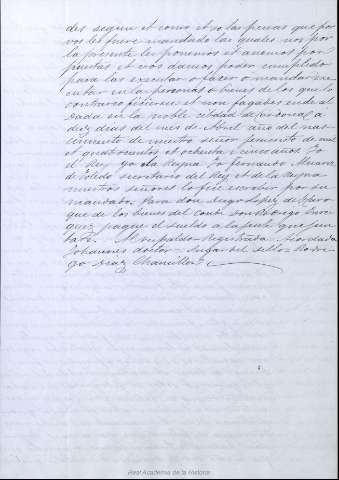 des segun et como et so las penas que por
vos les fuere mandado las quales nos por
la presente les ponemos et avemos por
puestas et vos damos poder cumplido
para las executar o facer o mandar exe-
cutar en las personas o bienes de los que lo
contrario ficieren et non fagades ende al
Dada en la noble cibdad de cordova a
diez dias del mes de Abril año del nas-
cimiento de nuestro señor Jemucristo de mil
et quatrocientos et ochenta et cinco años. Yo
el Rey Yo la Reyna Yo fernando Alvarez
de Toledo secretario del Rey et de la Reyna
nuestros señores lo fice escrebir por su
mandado. Para don diego Lopez de
que de los bienes del conde Don Rodrigo
pague el sueldo a la gente que jun-
tare. Al respaldo Registrada Acordada
Johannes doctor Lugar del sello Rodri-
go Diaz Chanciller.
Real Academia de la Historia